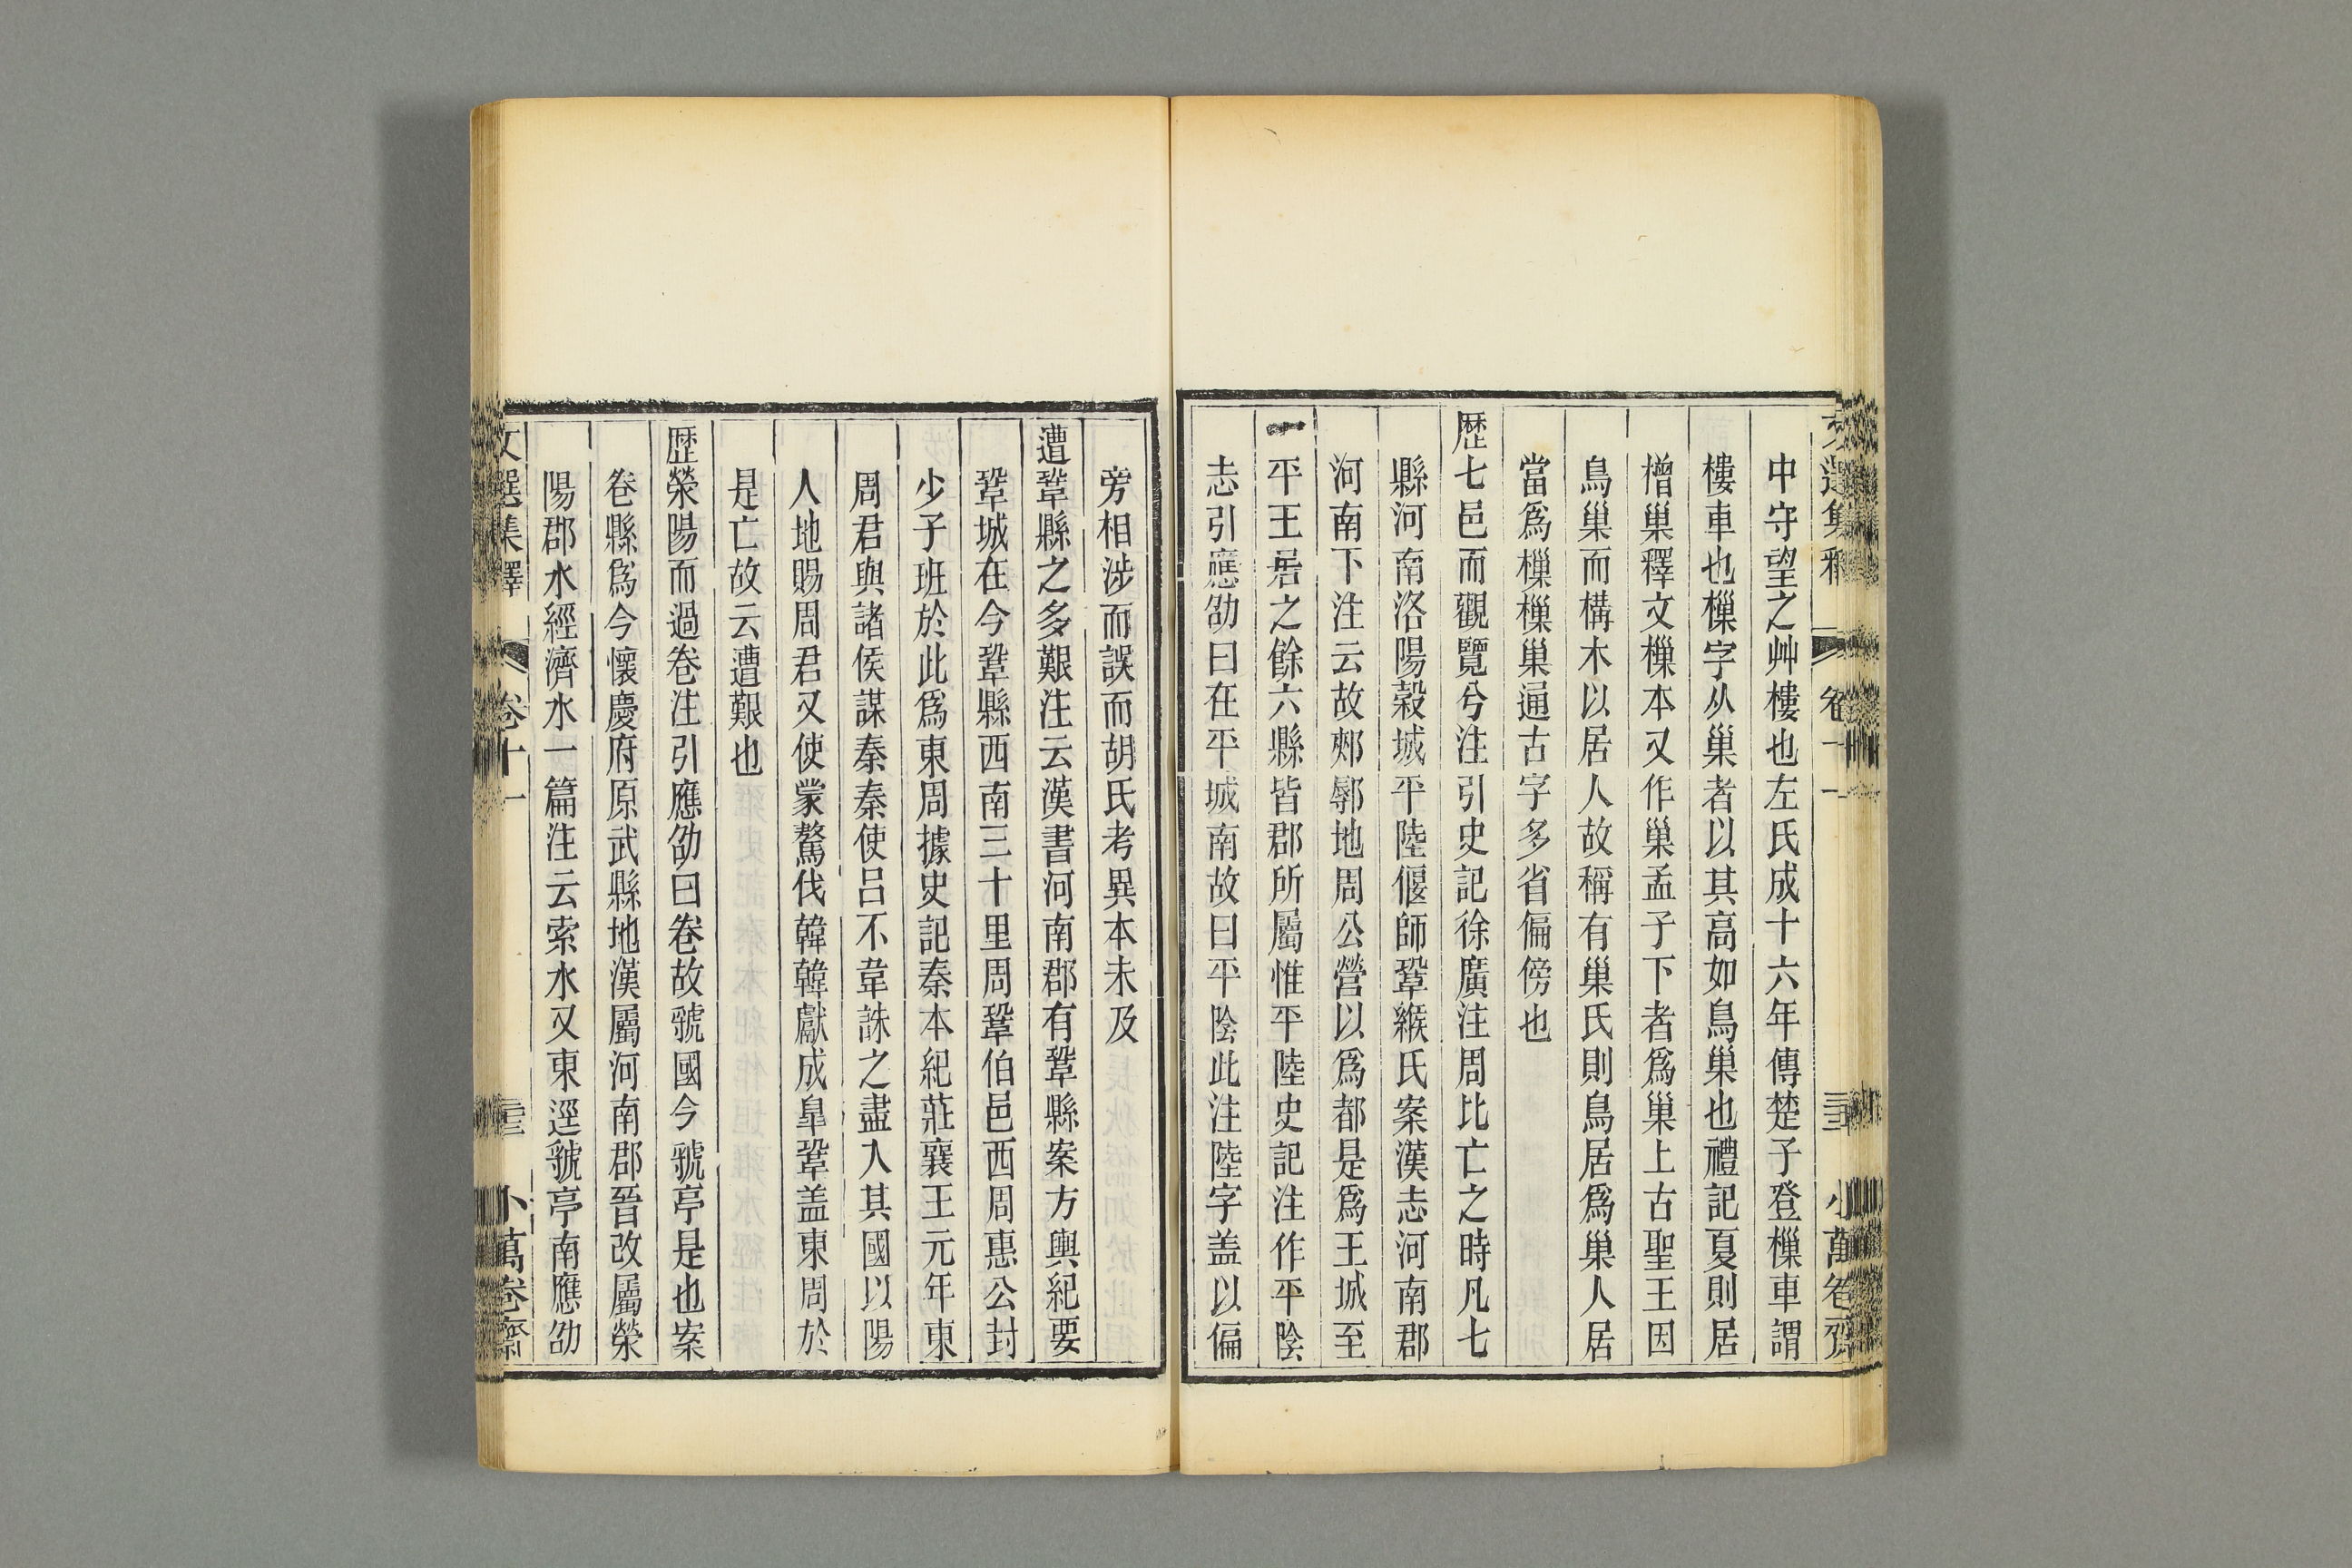 中守望之艸樓也左氏成十六年傳楚子登樔車謂
樓車也樔字从巢者以其高如鳥巢也禮記夏則居
橧巢釋文樔本又作巢孟子下者爲巢上古聖王因
鳥巢而構木以居人故稱有巢氏則鳥居爲巢人居
當爲樔樔巢通古字多省偏傍也
歷七邑而觀覽兮注引史記徐廣注周比亡之時凡七
縣河南洛陽穀城平陸偃師鞏緱氏案漢志河南郡
河南下注云故郟鄏地周公營以爲都是爲王城至
平王居之餘六縣皆郡所屬惟平陸史記注作平陰
志引應劭曰在平城南故曰平陰此注陸字蓋以偏
旁相涉而誤而胡氏考異本未及
遭鞏縣之多艱注云漢書河南郡有鞏縣案方輿紀要
鞏城在今鞏縣西南三十里周鞏伯邑西周惠公封
少子班於此爲東周據史記秦本紀莊襄王元年東
周君與諸侯謀秦秦使呂不韋誅之盡入其國以陽
人地賜周君又使蒙驁伐韓韓獻成臯鞏盖東周於
是亡故云遭艱也
歷滎陽而過卷注引應劭曰卷故虢國今虢亭是也案
卷縣爲今懷慶府原武縣地漢屬河南郡晉改屬滎
陽郡水經濟水一篇注云索水又東逕虢亭南應劭
文選集釋 卷十一 小萬卷齋